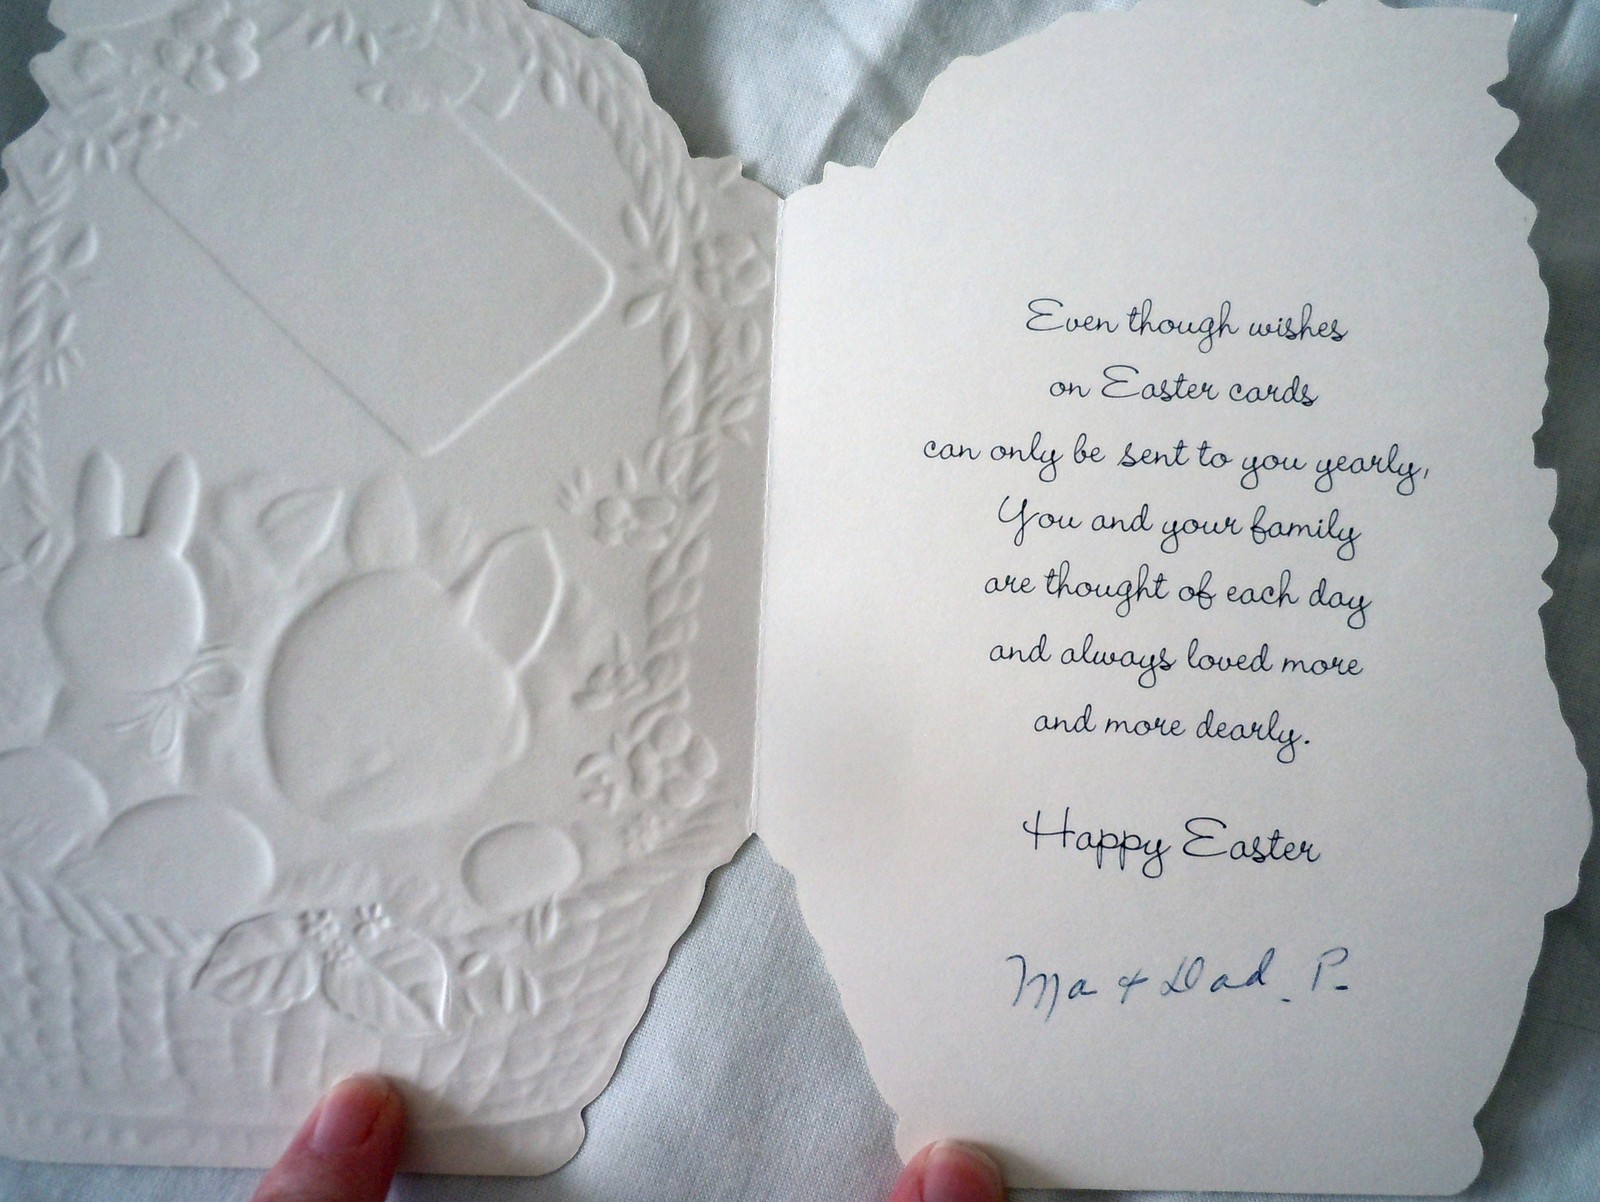 Even though wishes
on Easter cards
can only be sent to you yearly,
You and your family
are thought of each day
and always loved more
and more dearly.
Happy Easter
Ma + Dad. P.